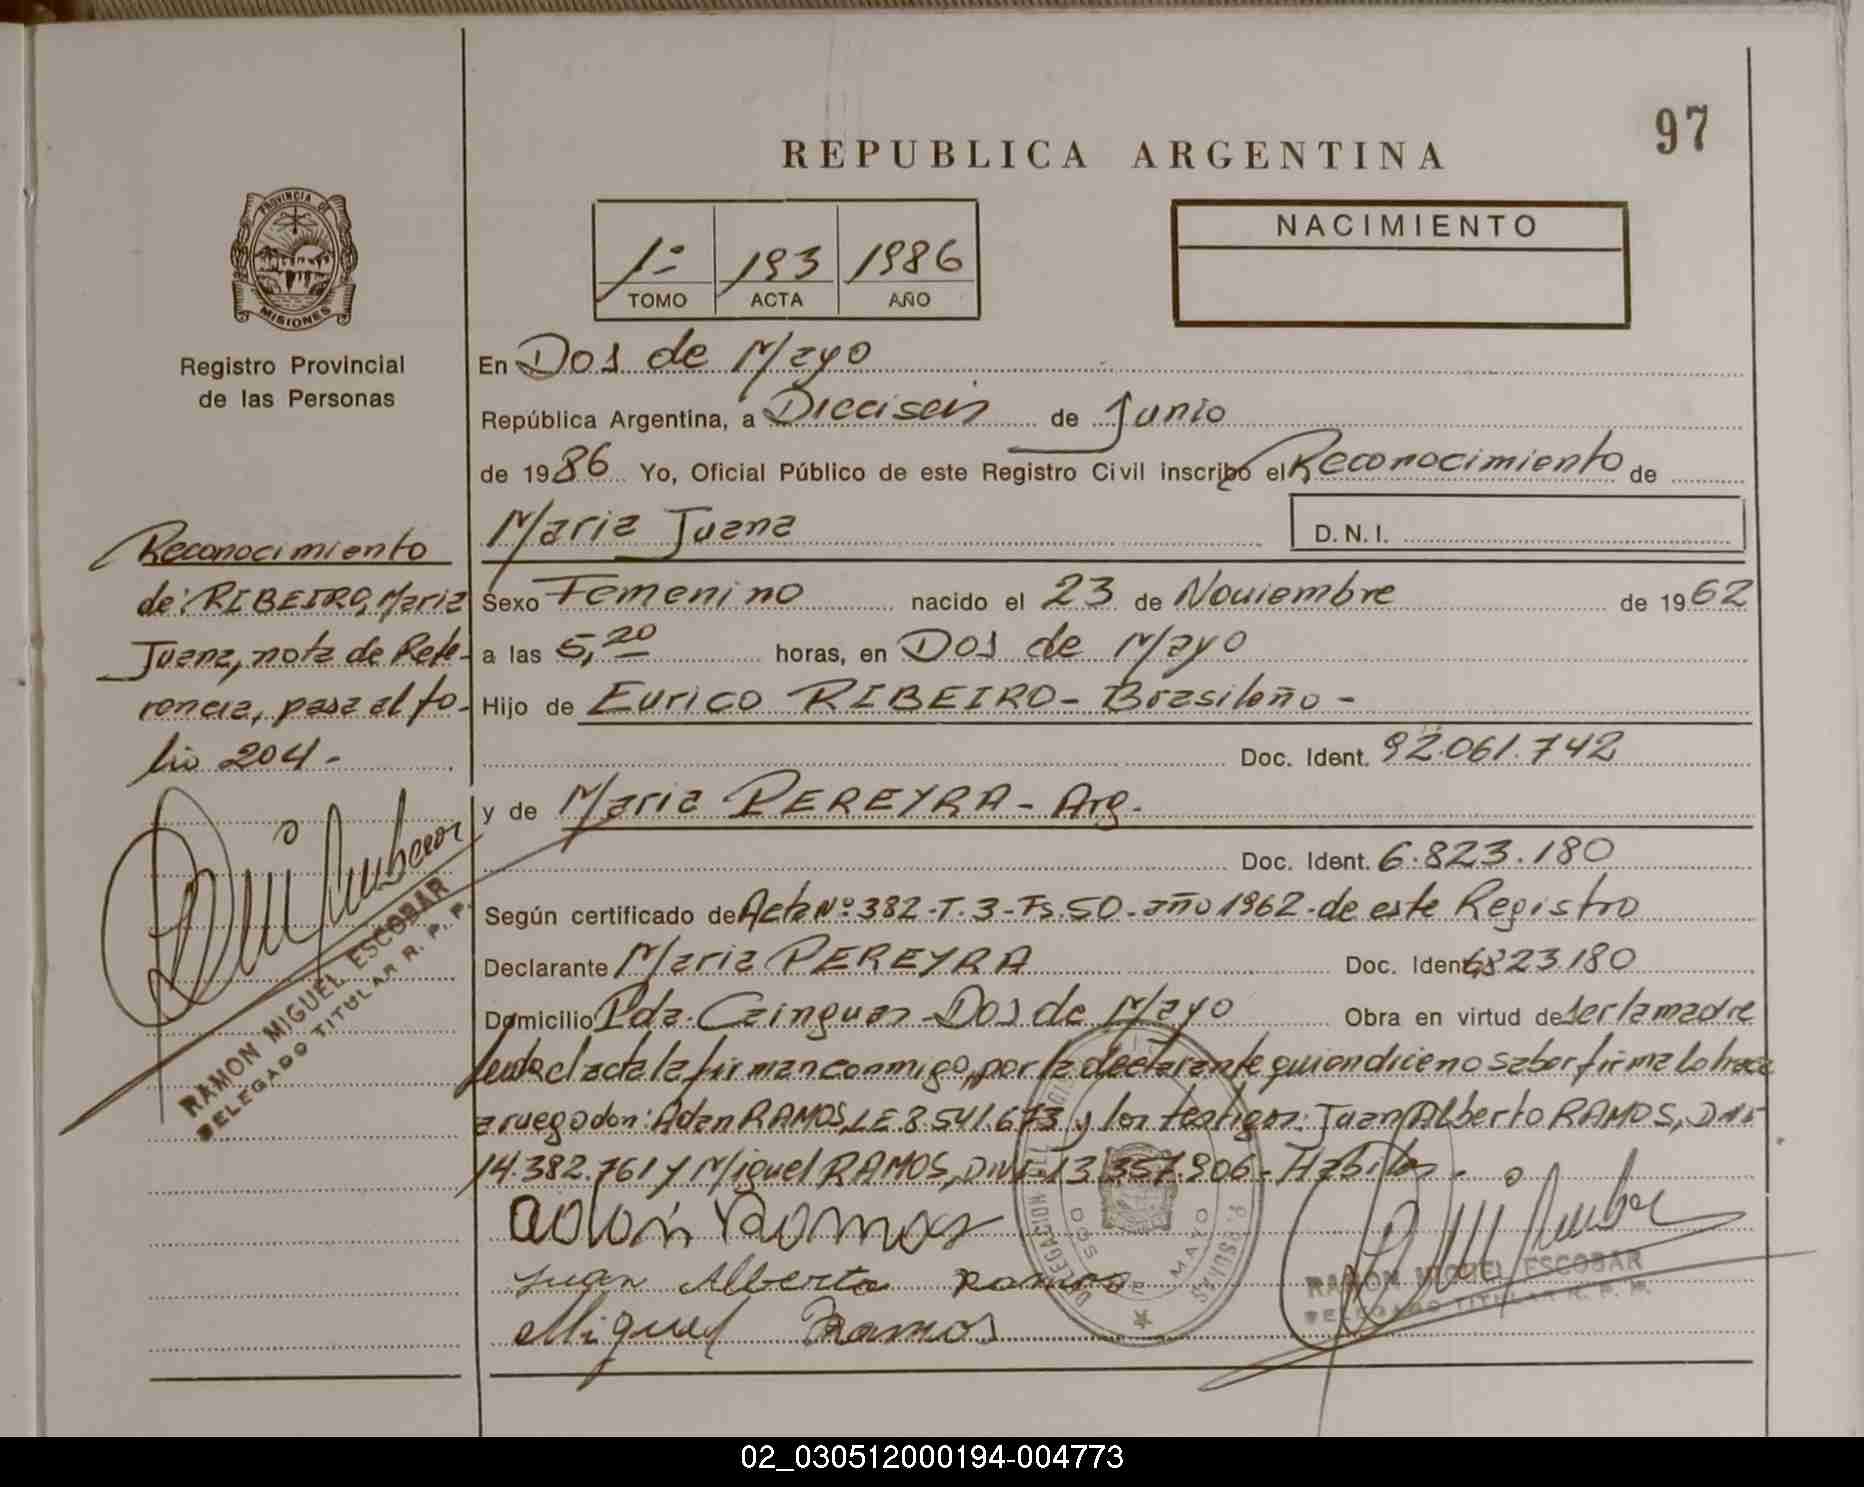 97
REPUBLICA ARGENTINA
PROVINCIA DE
MISIONES
Registro Provincial
de las Personas
1º 193 1986
TOMO ACTA AÑO
NACIMIENTO
En Dos de Mayo
República Argentina, a Dieciseis de Junio
de 1986 Yo, Oficial Público de este Registro Civil inscribo el Reconocimiento de
Maria Juana D.N.I.
Sexo Femenino nacido el 23 de Noviembre de 1962
a las 5,20 horas, en Dos de Mayo
Hijo de Eurico RIBEIRO - Brasileño -
Doc. Ident. 92.061.742
y de Maria PEREYRA - Arg.
Doc. Ident. 6.823.180
Según certificado de Acta Nº 382-T.3-Fs.50-año 1962-de este Registro
Declarante Maria PEREYRA Doc. Ident. 6823.180
Domicilio Pda. Cainguas-Dos de Mayo Obra en virtud de ser la madre
leida el acta la firman conmigo, por la declarante quien dice no saber firma lo hace
a ruego don: Adan RAMOS, LE 8.541.673 y los testigos: Juan Alberto RAMOS, DNI
14.382.761 y Miguel RAMOS, DNI. 13.357.906 - Habiles.
adan Ramos
Juan Alberto Ramos
Miguel Ramos
DELEGACION DEL
DOS DE MAYO
RAMON MIGUEL ESCOBAR
DELEGADO TITULAR R. P. P.
Reconocimiento
de: RIBEIRO, Maria
Juana, nota de Refe-
rencia, pasa al fo-
lio 204.-
RAMON MIGUEL ESCOBAR
DELEGADO TITULAR R. P. P.
02_030512000194-004773